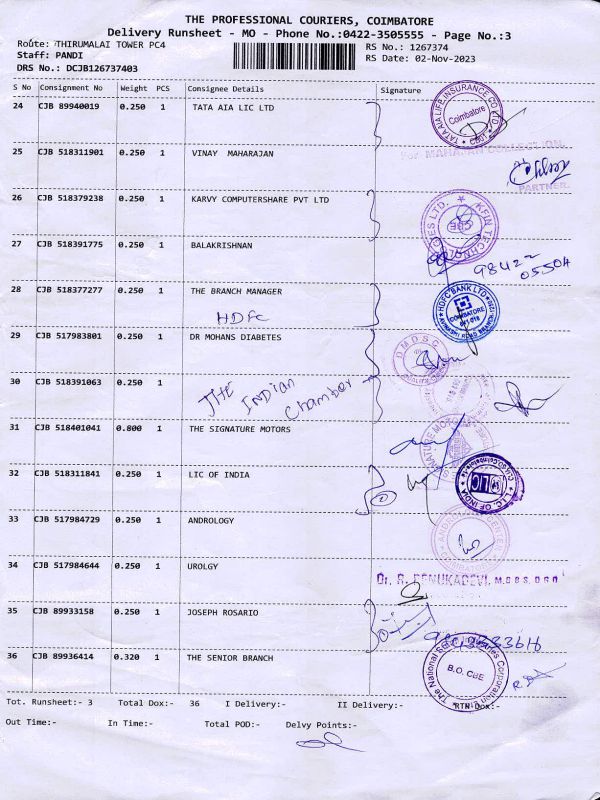 THE PROFESSIONAL COURIERS, COIMBATORE
Delivery Runsheet - MO - Phone No.:0422-3505555 - Page No.:3
Route: THIRUMALAI TOWER PC4
Staff: PANDI
DRS No.: DCJB126737403
RS No.: 1267374
RS Date: 02-Nov-2023
S No Consignment No Weight PCS Consignee Details Signature
24 CJB 89940019 0.250 1 TATA AIA LIC LTD
TATA AIA LIFE INSURANCE CO LTD. Coimbatore
25 CJB 518311901 0.250 1 VINAY MAHARAJAN
PARTNER.
26 CJB 518379238 0.250 1 KARVY COMPUTERSHARE PVT LTD
KFIN TECHNOLOGIES LTD. CBE
27 CJB 518391775 0.250 1 BALAKRISHNAN
98422
05504
28 CJB 518377277 0.250 1 THE BRANCH MANAGER
HDFC
HDFC BANK LTD COIMBATORE 641 018
29 CJB 517983801 0.250 1 DR MOHANS DIABETES
D.M.D.S.C.
30 CJB 518391063 0.250 1 THE INDIAN Chamber
31 CJB 518401041 0.800 1 THE SIGNATURE MOTORS
SIGNATURE MO
32 CJB 518311841 0.250 1 LIC OF INDIA
LIC L.I.C. OF INDIA
33 CJB 517984729 0.250 1 ANDROLOGY
34 CJB 517984644 0.250 1 UROLGY
Dr. R. RENUKADEVI, M.B.B.S, D.R.O
35 CJB 89933158 0.250 1 JOSEPH ROSARIO
36 CJB 89936414 0.320 1 THE SENIOR BRANCH
The National Corporation B.O. CBE
Tot. Runsheet:- 3 Total Dox:- 36 I Delivery:- II Delivery:- RTN Dox:-
Out Time:- In Time:- Total POD:- Delvy Points:-